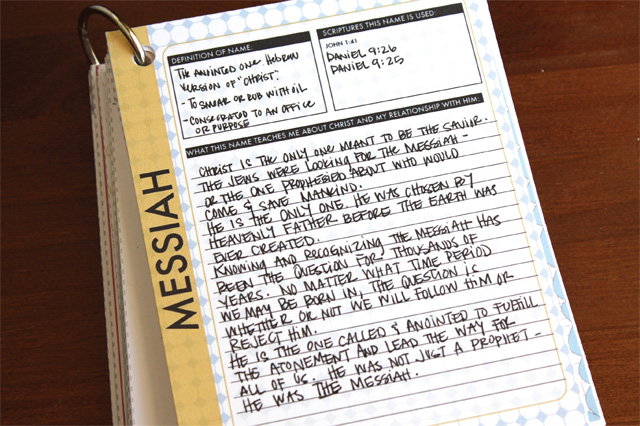 MESSIAH
DEFINITION OF NAME:
THE ANOINTED ONE. HEBREW
VERSION OF "CHRIST".
- TO SMEAR OR RUB WITH OIL
- CONSECRATED TO AN OFFICE
OR PURPOSE
SCRIPTURES THIS NAME IS USED:
JOHN 1:41
DANIEL 9:26
DANIEL 9:25
WHAT THIS NAME TEACHES ME ABOUT CHRIST AND MY RELATIONSHIP WITH HIM:
CHRIST IS THE ONLY ONE MEANT TO BE THE SAVIOR.
THE JEWS WERE LOOKING FOR THE MESSIAH -
OR THE ONE PROPHESIED ABOUT WHO WOULD
COME & SAVE MANKIND.
HE IS THE ONLY ONE. HE WAS CHOSEN BY
HEAVENLY FATHER BEFORE THE EARTH WAS
EVER CREATED.
KNOWING AND RECOGNIZING THE MESSIAH HAS
BEEN THE QUESTION FOR THOUSANDS OF
YEARS. NO MATTER WHAT TIME PERIOD
WE MAY BE BORN IN, THE QUESTION IS
WHETHER OR NOT WE WILL FOLLOW HIM OR
REJECT HIM.
HE IS THE ONE CALLED & ANOINTED TO FULFILL
THE ATONEMENT AND LEAD THE WAY FOR
ALL OF US. HE WAS NOT JUST A PROPHET -
HE WAS THE MESSIAH.